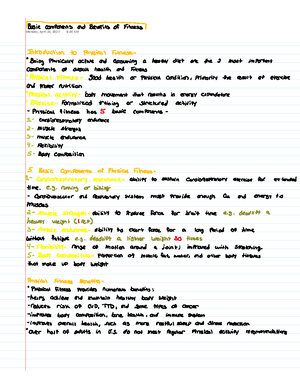 Basic components and Benefits of Fitness
Introduction to Physical Fitness-
*Being Physically active and consuming a healthy diet are the 2 most important
components of overall health and fitness
*Physical fitness- Good health or Physical Condition, Primarily the result of exercise
and Proper nutrition
*Physical activity- body movement that results in energy expenditure
*Exercise- Formalized training or structured activity
- Physical fitness has 5 basic components -
1- Cardiorespiratory endurance
2- muscle strength
3- muscle endurance
4- Flexibility
5- Body Composition
5 Basic Components of Physical Fitness-
1- Cardiorespiratory endurance- ability to sustain Cardiorespiratory exercise for extended
time. e.g. running or biking
- Cardiovascular and respiratory systems must Provide enough O2 and energy to
muscles
2- muscle strength- ability to produce force for short time e.g. deadlift a
heavier weight
3- muscle endurance- ability to exert force for a long period of time
without fatigue e.g. deadlift a lighter weight 20 times
4- Flexibility- range of motion around a joint; improved with stretching.
5- Body Composition- Proportion of muscle, fat, water, and other body tissues
that make up body weight
Physical Fitness Benefits-
* Physical Fitness provides numerous benefits:
-helps achieve and maintain healthy body weight
-reduces risk of CVD, TTD, and some types of cancer
-improves body composition, bone health, and immune system
-improves overall health, such as more restful sleep and stress reduction
*Over half of adults in U.S. do not meet regular Physical activity recommendations